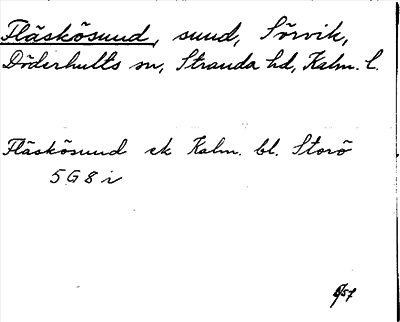 Fläskösund, sund, Sörvik,
Döderhults sn, Stranda hd, Kalm. l.
Fläskösund ek Kalm. bl. Storö
5 G 8 i